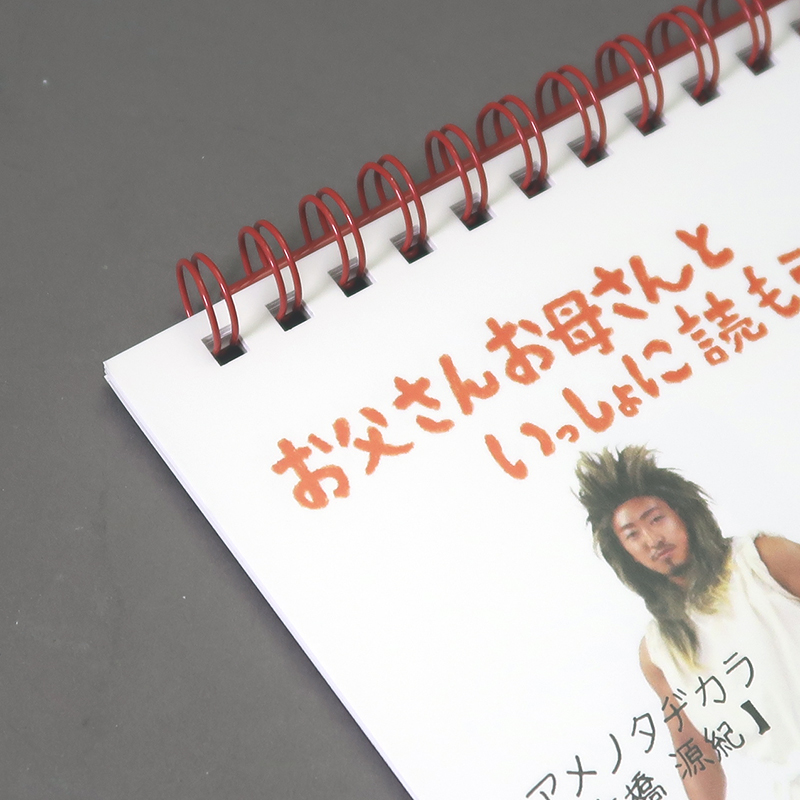 お父さんお母さんと
いっしょに読も
アメノタヂカラ
橋 源紀】